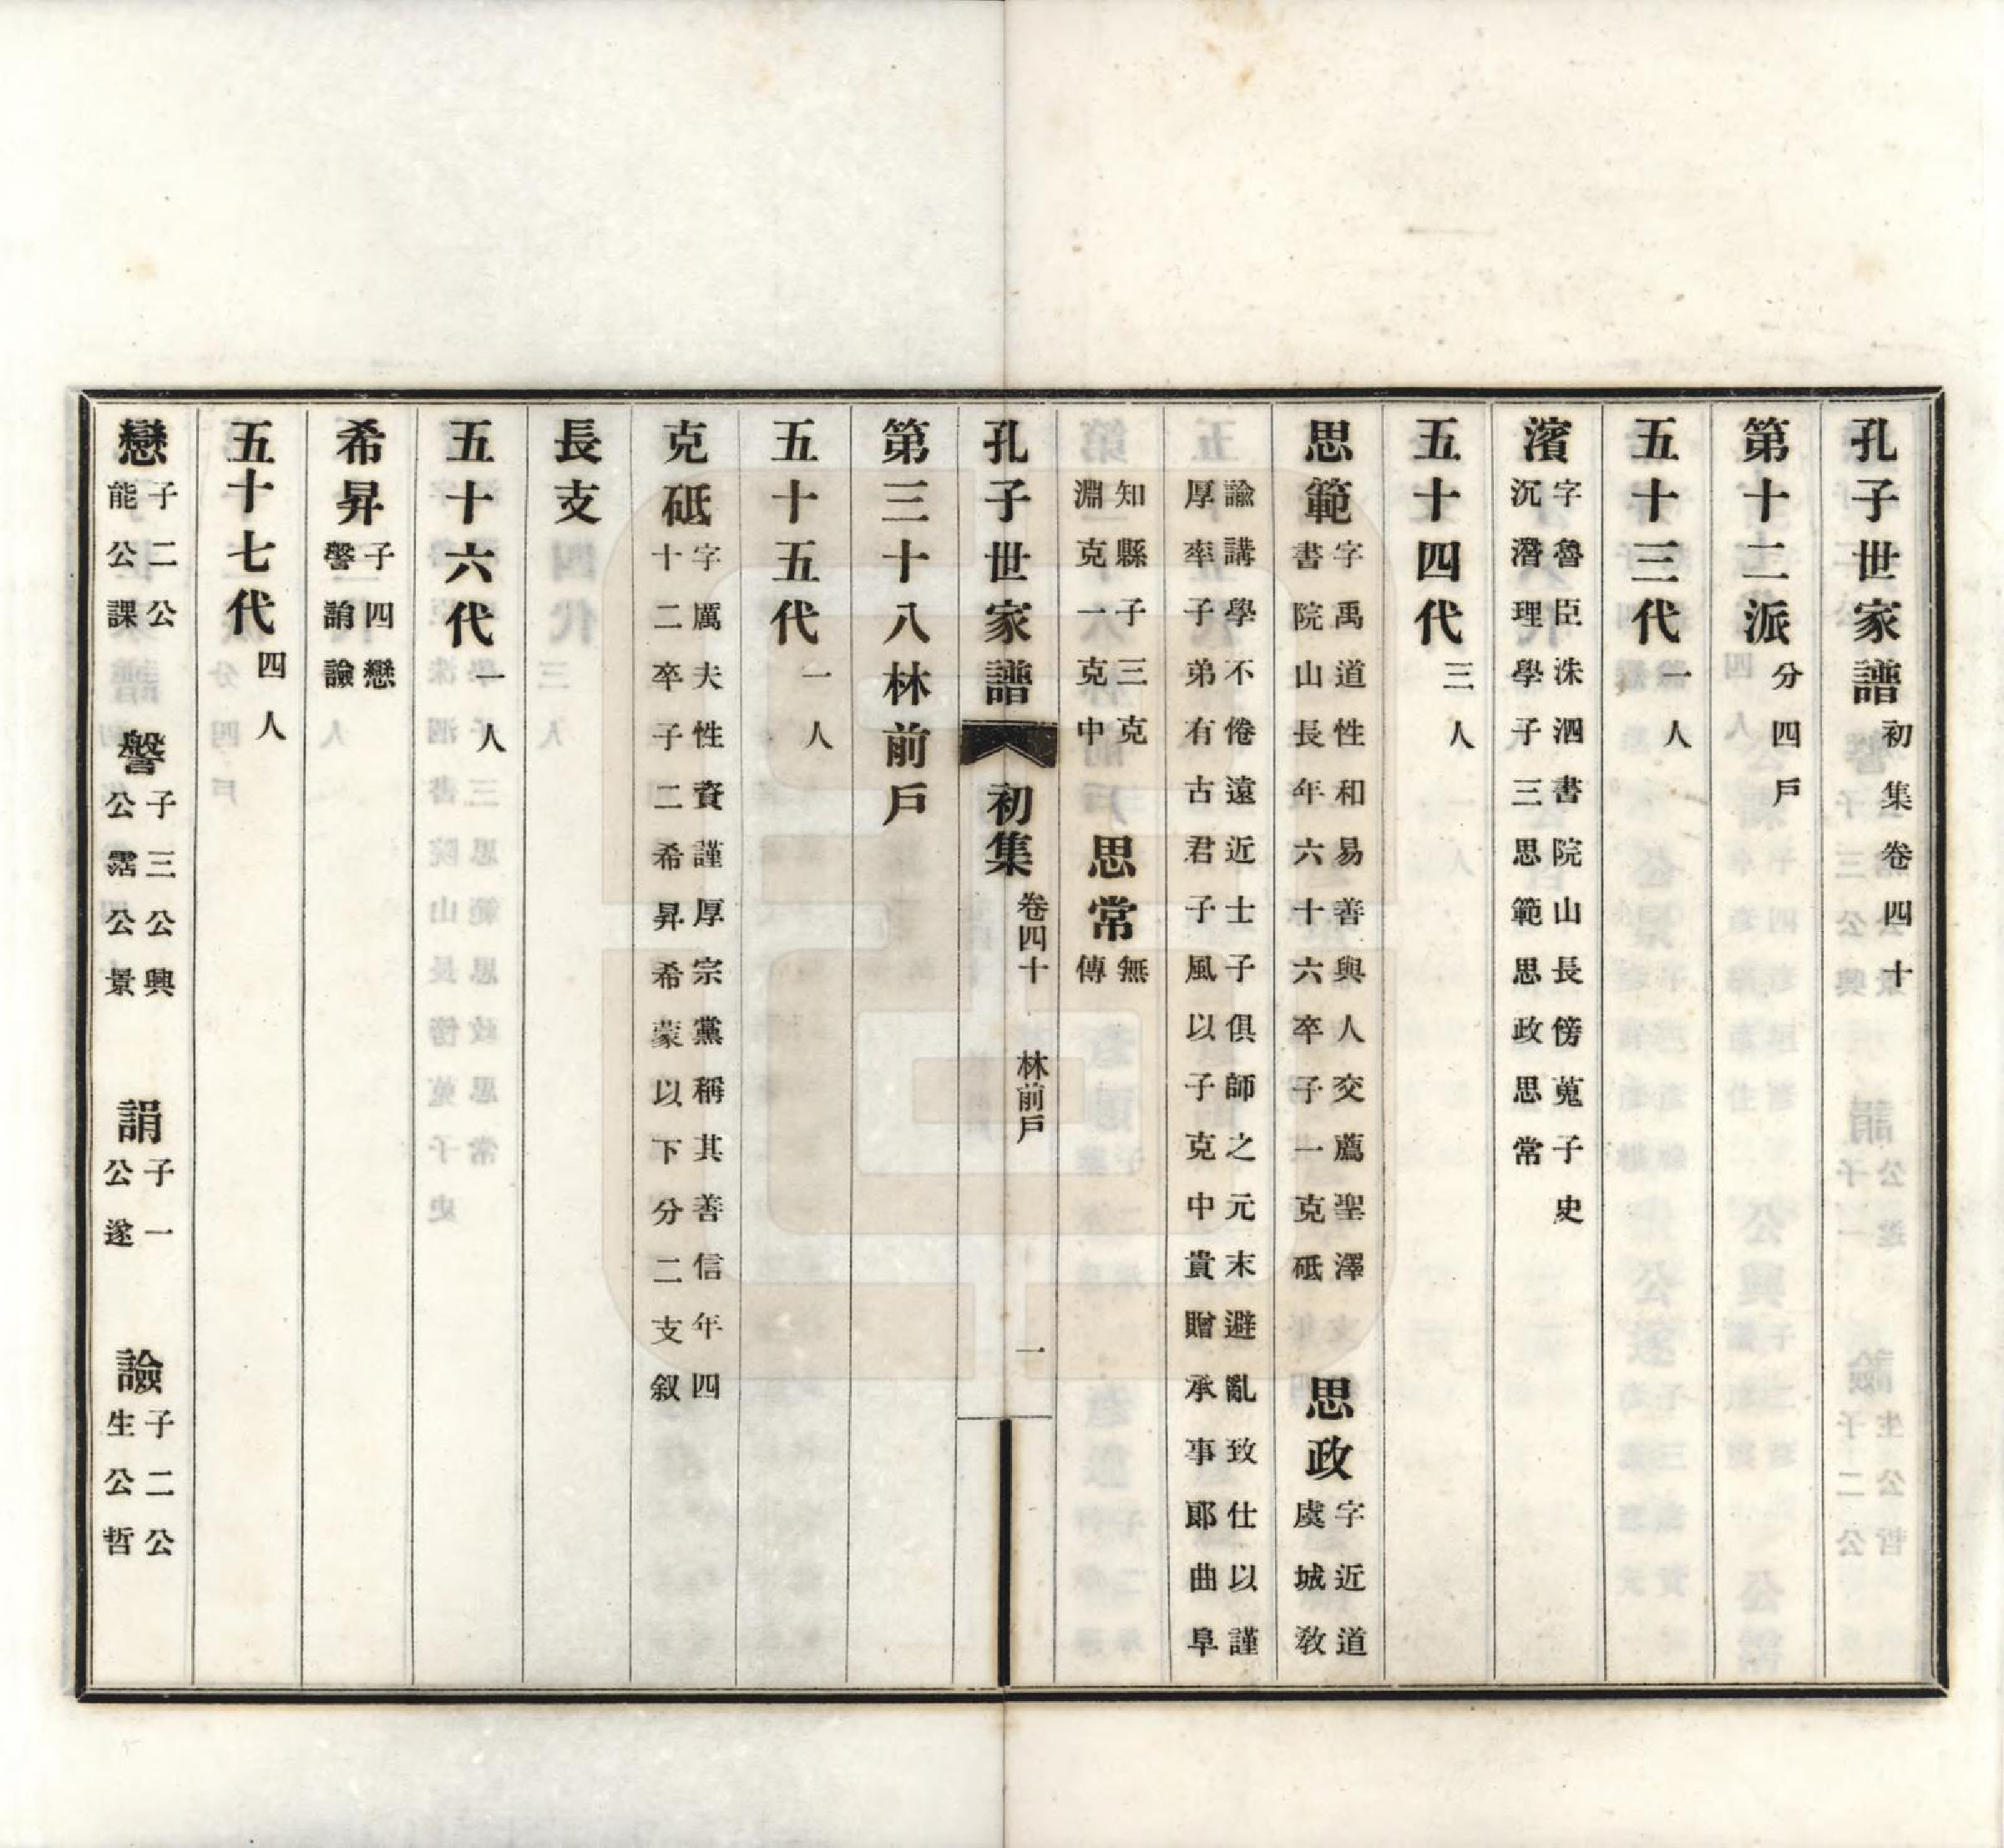 孔子世家譜初集卷四十
第十二派分四戶
五十三代一人
濱字魯臣洙泗書院山長傍蒐子史
沉潛理學子三思範思政思常
五十四代三人
思範字禹道性和易善與人交薦聖澤
書院山長年六十六卒子一克砥
思政字近道
虞城敎
諭講學不倦遠近士子俱師之元末避亂致仕以謹
厚率子弟有古君子風以子克中貴贈承事郞曲阜
知縣子三克
淵克一克中
思常無
傳
孔子世家譜 初集 卷四十 林前戶 一
第三十八林前戶
五十五代一人
克砥字厲夫性資謹厚宗黨稱其善信年四
十二卒子二希昇希蒙以下分二支叙
長支
五十六代一人
希昇子四戀
譥誚譣
五十七代四人
戀子二公
能公課
譥子三公興
公霑公景
誚子一
公遂
譣子二公
生公哲